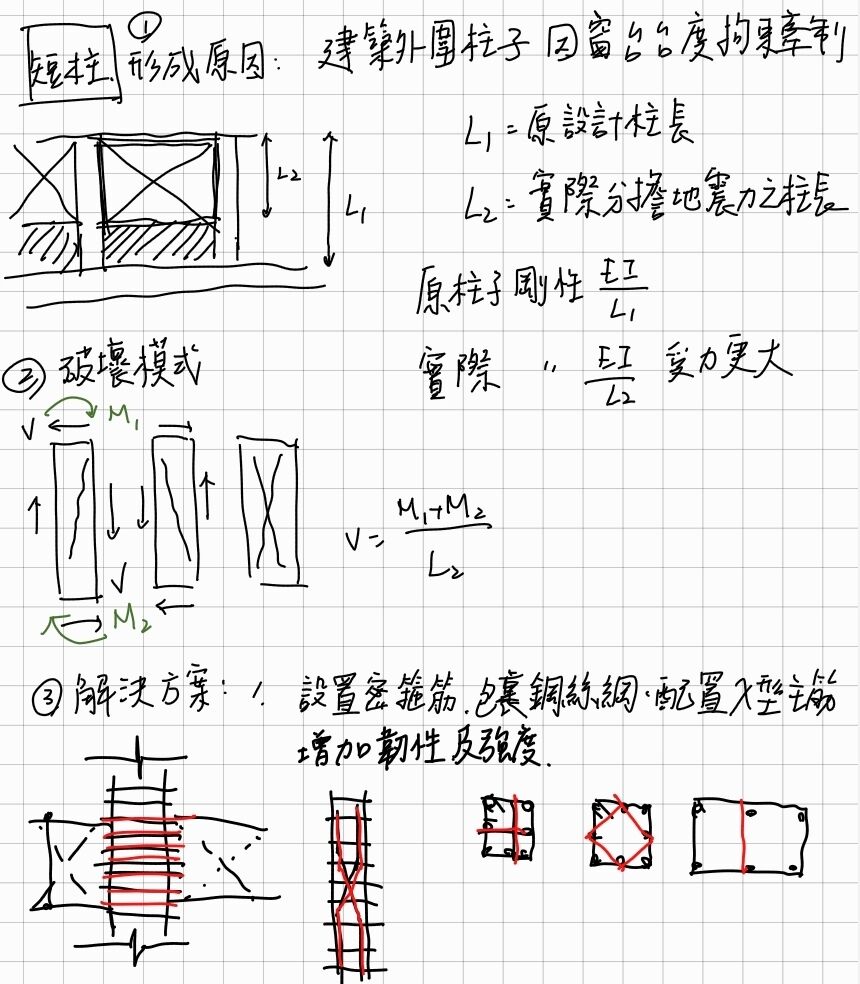 ①
短柱 形成原因: 建築外圍柱子因窗台台度拘束牽制
L₁=原設計柱長
L₂=實際分擔地震力之柱長
L₂
L₁
原柱子剛性 EI/L₁
實際 〃 EI/L₂ 受力更大
② 破壞模式
V M₁
V= (M₁+M₂)/L₂
V
M₂
③ 解決方案: 1. 設置密箍筋.包裹鋼絲網.配置X型主筋
增加韌性及強度.